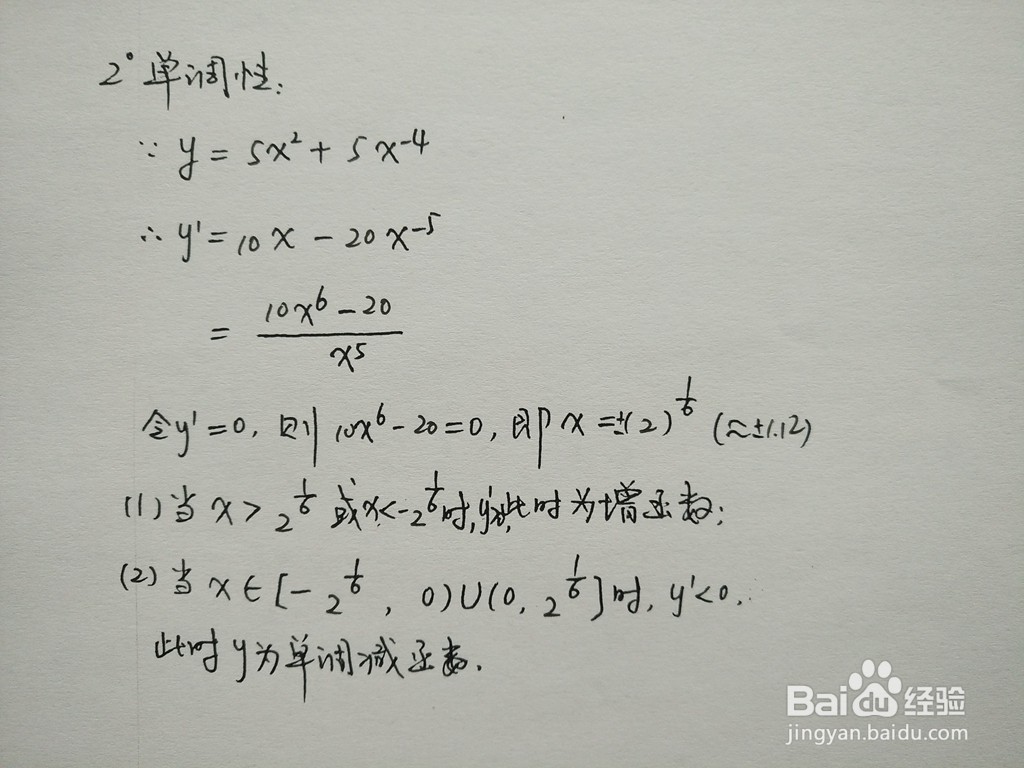 2° 单调性:
∵ y = 5x² + 5x⁻⁴
∴ y' = 10x - 20x⁻⁵
= (10x⁶ - 20) / x⁵
令y'=0, 则 10x⁶-20=0, 即 x=±(2)^(1/6) (≈±1.12)
(1) 当 x > 2^(1/6) 或x<-2^(1/6)时, 此时为增函数;
(2) 当 x∈[-2^(1/6), 0)∪(0, 2^(1/6)]时, y'<0.
此时y为单调减函数.
Baidu 经验
jingyan.baidu.com